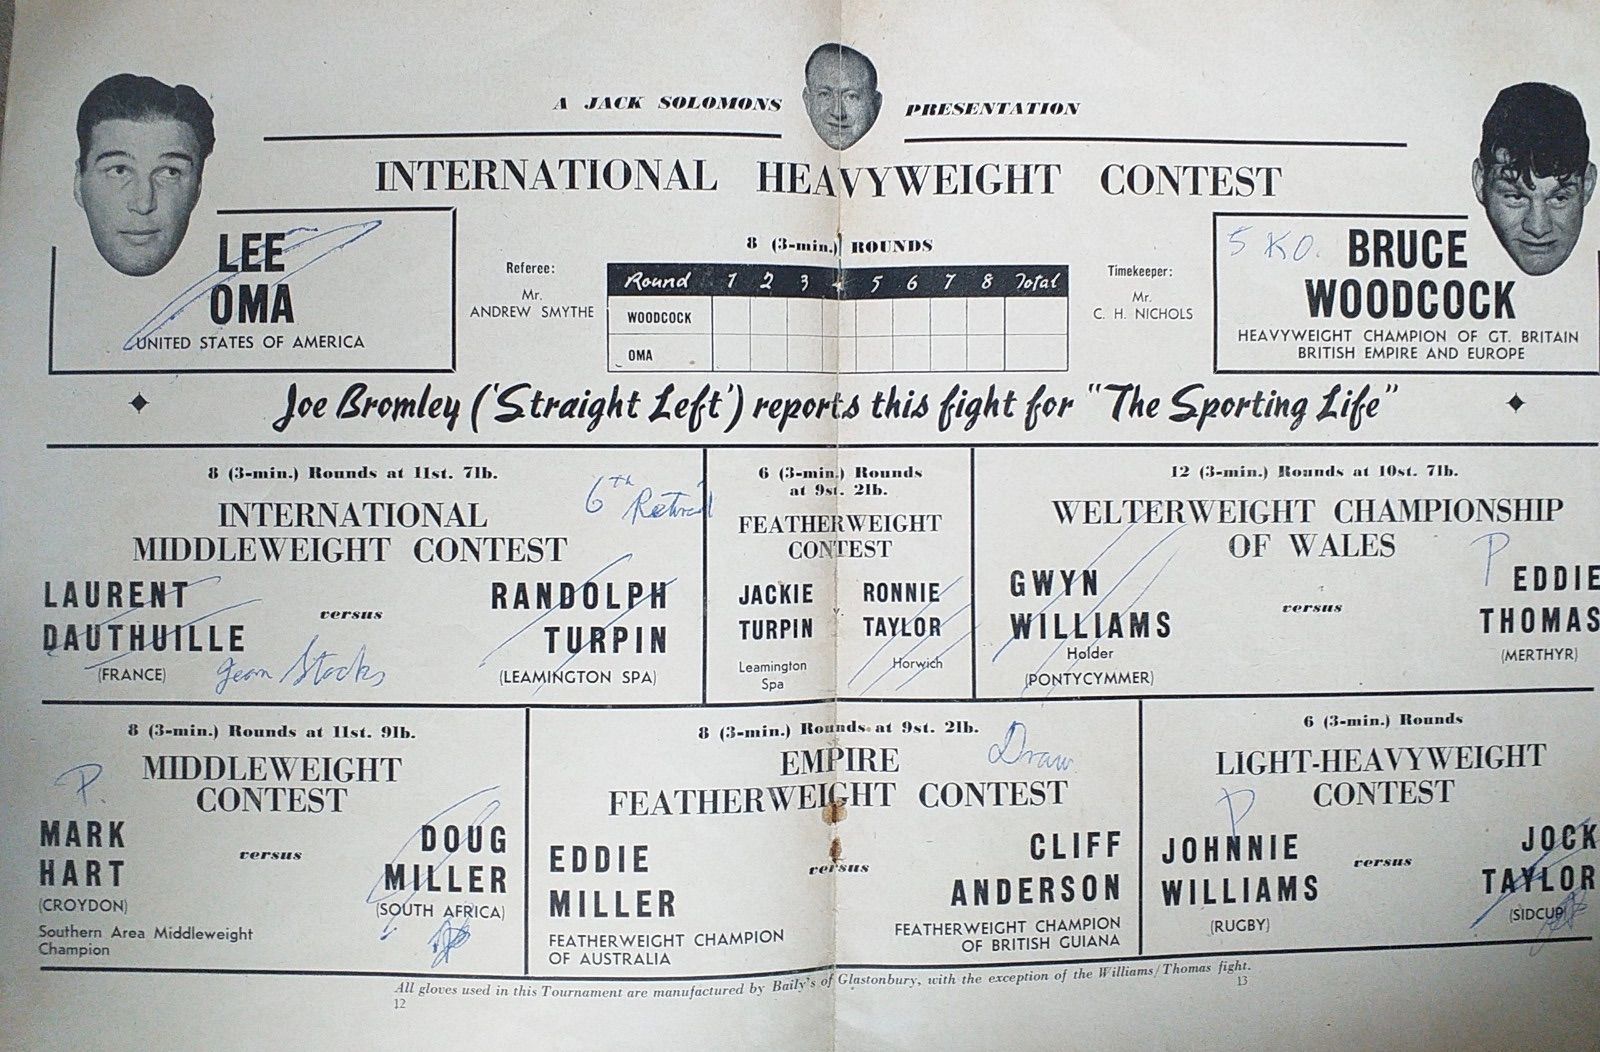 A JACK SOLOMONS PRESENTATION
INTERNATIONAL HEAVYWEIGHT CONTEST
LEE
OMA
UNITED STATES OF AMERICA
Referee:
Mr.
ANDREW SMYTHE
8 (3-min.) ROUNDS
Round 1 2 3 4 5 6 7 8 Total
WOODCOCK
OMA
Timekeeper:
Mr.
C. H. NICHOLS
5 KO.
BRUCE
WOODCOCK
HEAVYWEIGHT CHAMPION OF GT. BRITAIN
BRITISH EMPIRE AND EUROPE
Joe Bromley ('Straight Left') reports this fight for "The Sporting Life"
8 (3-min.) Rounds at 11st. 7lb.
6th Retired
INTERNATIONAL
MIDDLEWEIGHT CONTEST
LAURENT
DAUTHUILLE
(FRANCE)
Jean Stocks
versus
RANDOLPH
TURPIN
(LEAMINGTON SPA)
6 (3-min.) Rounds
at 9st. 2lb.
FEATHERWEIGHT
CONTEST
JACKIE
TURPIN
Leamington
Spa
v.
RONNIE
TAYLOR
Horwich
12 (3-min.) Rounds at 10st. 7lb.
WELTERWEIGHT CHAMPIONSHIP
OF WALES
GWYN
WILLIAMS
Holder
(PONTYCYMMER)
versus
P
EDDIE
THOMAS
(MERTHYR)
8 (3-min.) Rounds at 11st. 9lb.
MIDDLEWEIGHT
CONTEST
P.
MARK
HART
(CROYDON)
Southern Area Middleweight
Champion
versus
DOUG
MILLER
(SOUTH AFRICA)
8 (3-min.) Rounds at 9st. 2lb.
EMPIRE
FEATHERWEIGHT CONTEST
Draw
EDDIE
MILLER
FEATHERWEIGHT CHAMPION
OF AUSTRALIA
versus
CLIFF
ANDERSON
FEATHERWEIGHT CHAMPION
OF BRITISH GUIANA
6 (3-min.) Rounds
LIGHT-HEAVYWEIGHT
CONTEST
P
JOHNNIE
WILLIAMS
(RUGBY)
versus
JOCK
TAYLOR
(SIDCUP)
All gloves used in this Tournament are manufactured by Baily's of Glastonbury, with the exception of the Williams/Thomas fight.
12
13